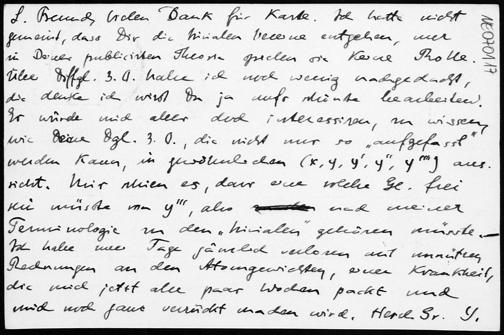 L. Freund, vielen Dank für Karte. Ich hatte nicht
gemeint, dass Dir die trivialen Theoreme entgehen, nur
in Deiner publizierten Theorie spielen sie keine Rolle.
Über Dffgl. 3. O. habe ich noch wenig nachgedacht,
die denke ich wirst Du ja aufs schönste bearbeiten.
Es würde mich aber doch interessiren, zu wissen,
wie Deine Dgl. 3. O., die nicht nur so „aufgefasst"
werden kann, in gewöhnlichen (x, y, y', y'', y''') aus-
sieht. Mir schien es, dass eine solche Gl. frei
sein müsste von y''', also nach meiner
Terminologie zu den „trivialen" gehören müsste. —
Ich habe neue Tage gänzlich verloren mit unnützen
Rechnungen an den Atomgewichten, einer Krankheit,
die mich jetzt alle paar Wochen packt und
mich noch ganz verrückt machen wird. Herzl. Gr. Y.
NE070117